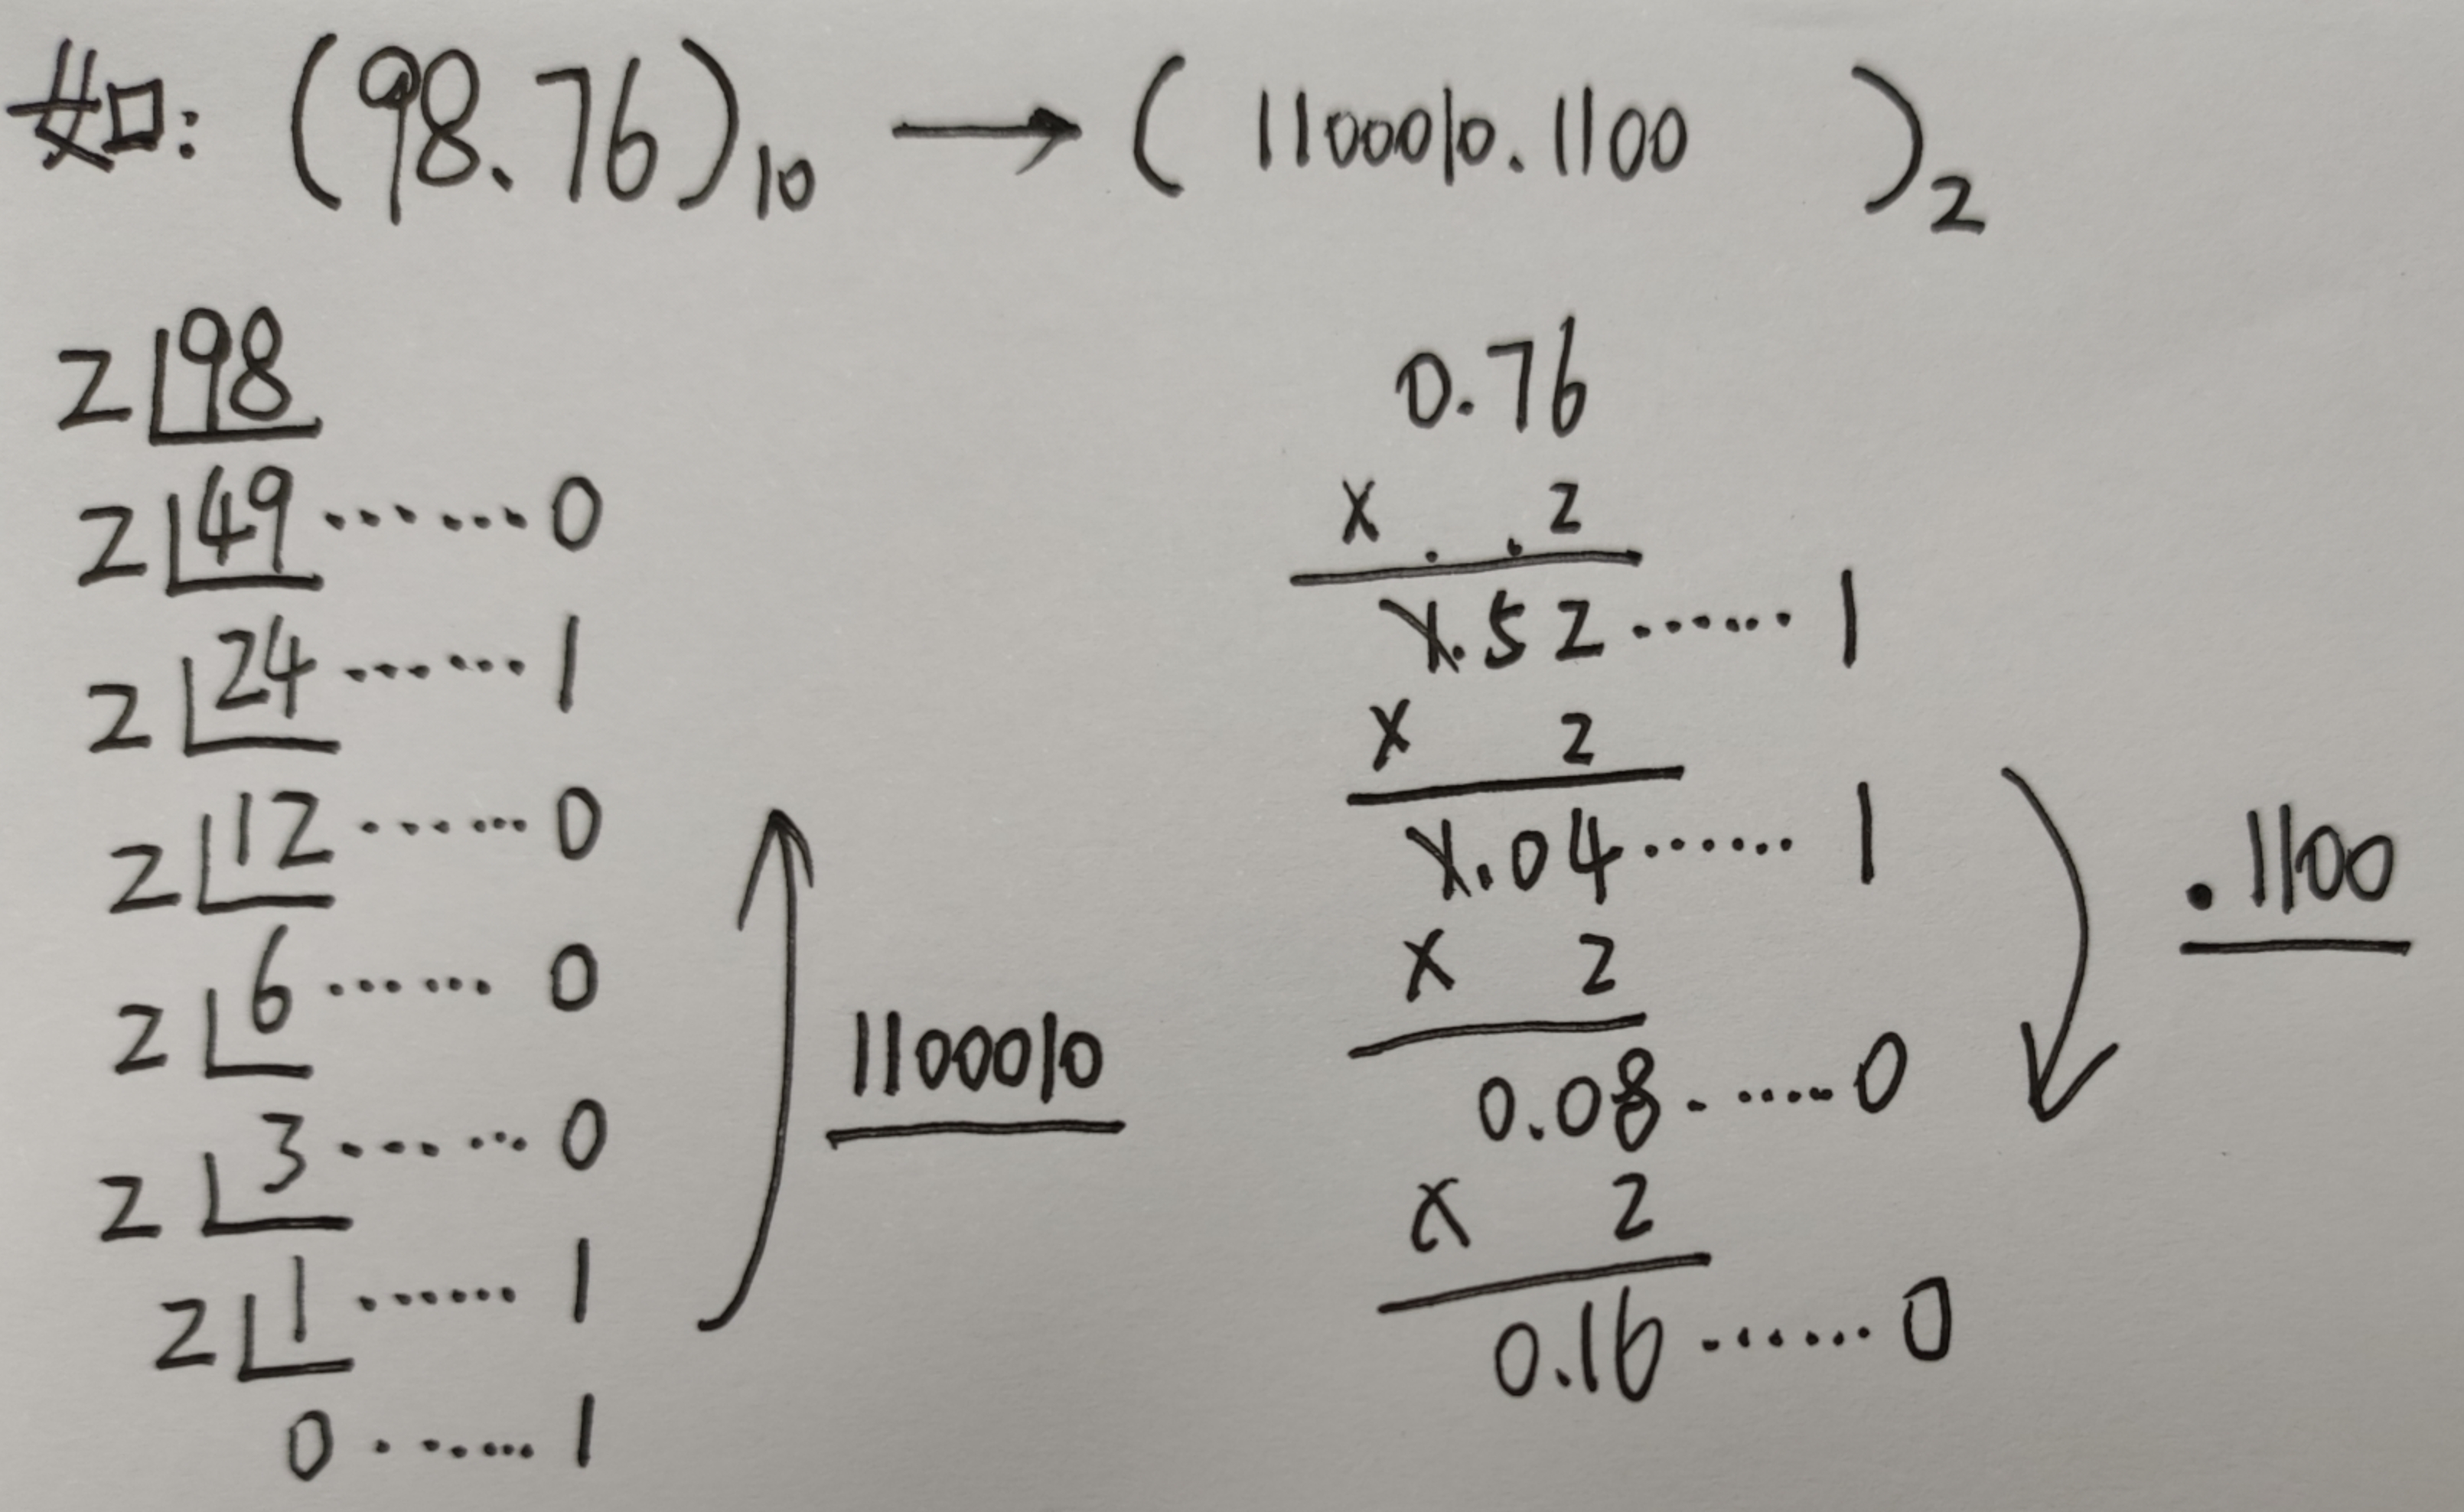 如: (98.76)10 → ( 1100010.1100 )2
2 98
2 49 ······· 0
2 24 ······· 1
2 12 ······· 0
2 6 ······ 0
2 3 ······ 0
2 1 ······ 1
0 ······ 1
1100010
0.76
x 2
1.52 ······ 1
x 2
1.04 ······ 1
x 2
0.08 ······ 0
x 2
0.16 ······ 0
.1100